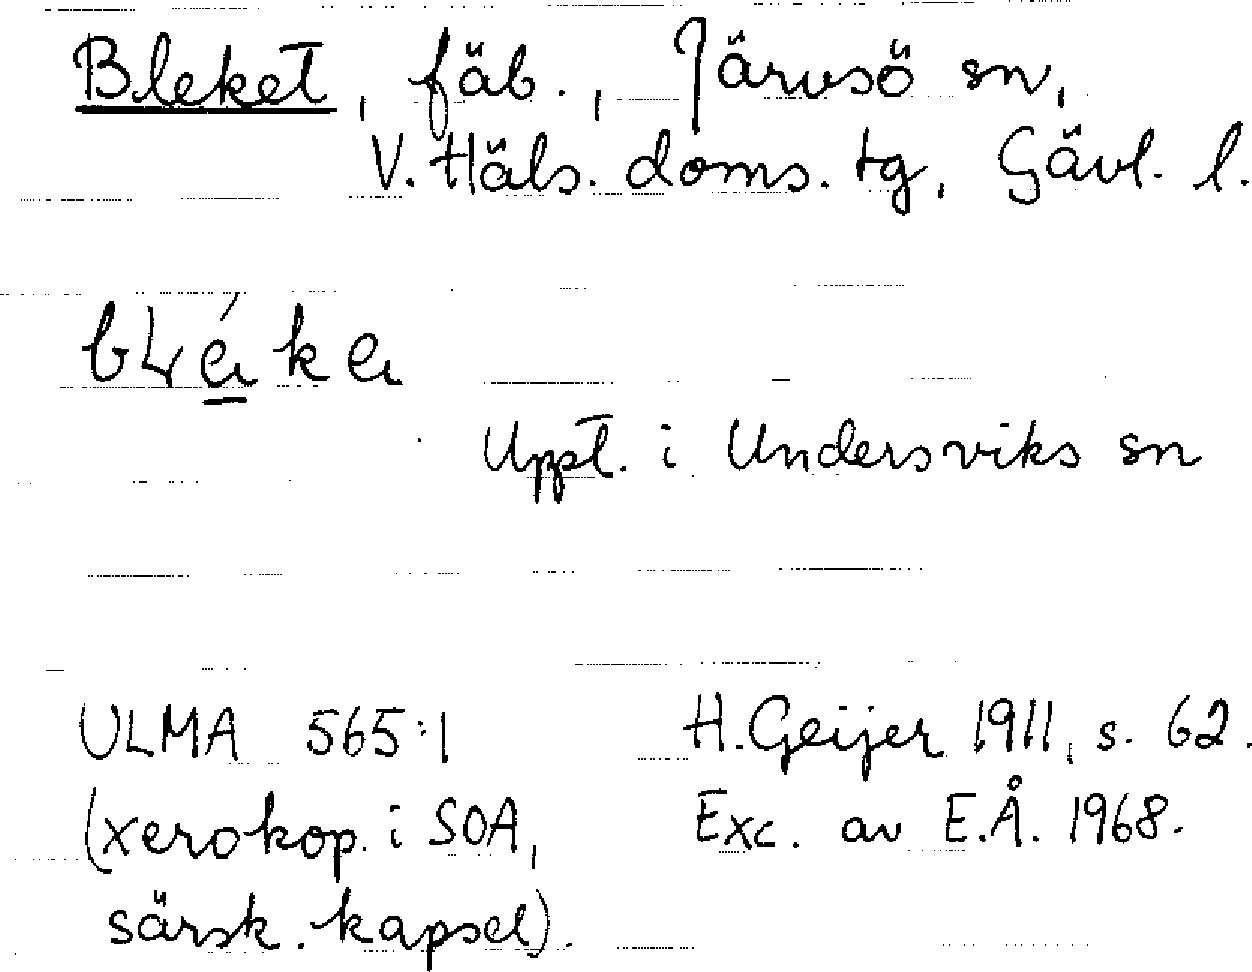 Bleket, fäb., Järvsö sn,
V. Häls. doms. tg, Gävl. l.
Uppt. i Undersviks sn
ULMA 565:1 H. Geijer 1911, s. 62.
(xerokop. i SOA, Exc. av E.Å. 1968.
särsk. kapsel).